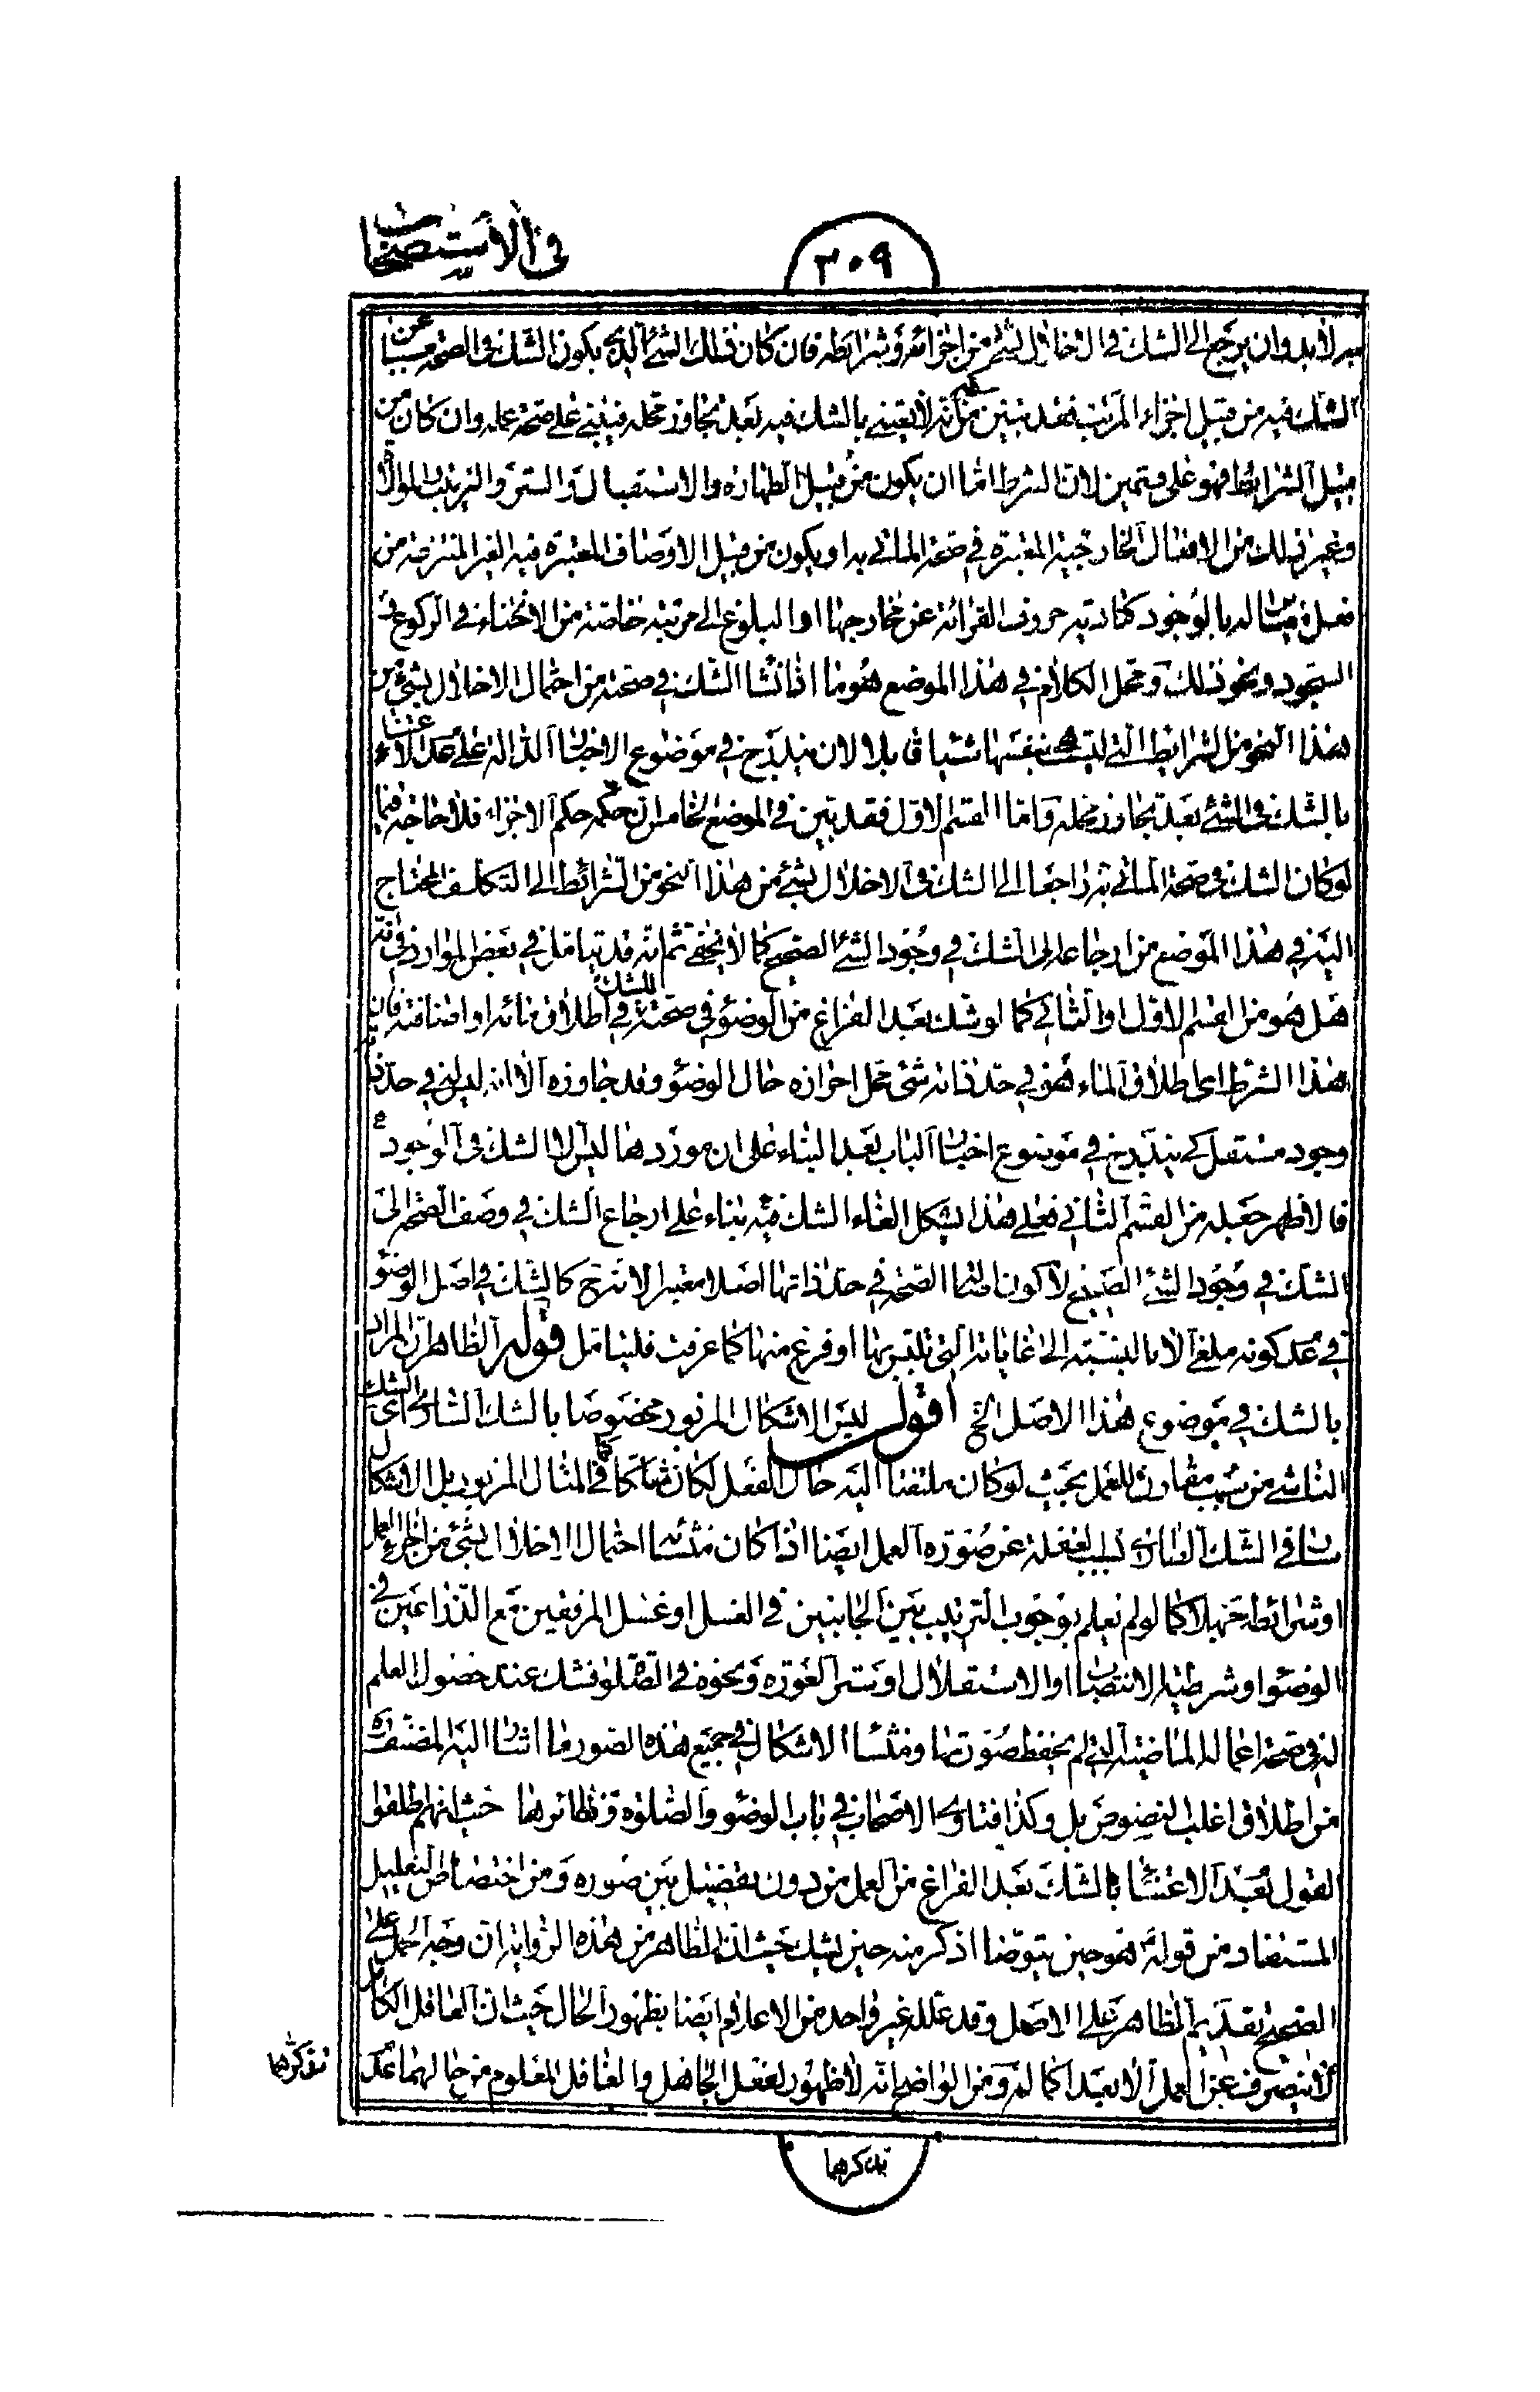 في الاستصحاب
٣٠٩
به لا بد وان يرجع الى الشك في الاخلال بشئ من اجزائه وشرائطه فان كان ذلك الشئ الذي يكون الشك في الصحة مسببا عن
الشك فيه من قبيل اجزاء المركب فقد تبين انه لا يعتني بالشك فيه بعد تجاوز محله فيبني على صحة عمله وان كان من
قبيل الشرائط فهو على قسمين لان الشرط اما ان يكون من قبيل الطهارة والاستقبال والستر والترتيب والموالاة
وغير ذلك من الافعال الخارجية المعتبرة في صحة المأتي به او يكون من قبيل الاوصاف المعتبرة فيه الغير المنتزعة من
فعل مباين له بالوجود كتأدية حروف القرائة عن مخارجها او البلوغ الى مرتبة خاصة من الانحناء في الركوع و
السجود ونحو ذلك ومحل الكلام في هذا الموضع هو ما اذا نشأ الشك في صحته من احتمال الاخلال بشئ من
هذا النحو من الشرائط التي ليست بنفسها شيئا قابلا لان يندرج في موضوع الاخبار الدالة على عدم الاعتناء
بالشك في الشئ بعد تجاوز محله واما القسم الاول فقد تبين في الموضع الخامس ان حكمه حكم الاجزاء فلا حاجة فيما
لو كان الشك في صحة المأتي به راجعا الى الشك في الاخلال بشئ من هذا النحو من الشرائط الى التكلف المحتاج
اليه في هذا الموضع من ارجاعه الى الشك في وجود الشئ الصحيح كما لا يخفى ثم انه قد يتامل في بعض الموارد في انه
هل هو من القسم الاول او الثاني كما لو شك بعد الفراغ من الوضوء في صحته للشك في اطلاق مائه او اضافته فان
هذا الشرط اي اطلاق الماء فهو في حد ذاته شئ محل احرازه حال الوضوء وقد جاوزه الا انه ليس في حد ذاته
وجود مستقل كي يندرج في موضوع اخبار الباب بعد البناء على ان موردها ليس الا الشك في الوجود
فالاظهر جعله من القسم الثاني فعلى هذا يشكل الغاء الشك فيه بناء على ارجاع الشك في وصف الصحة الى
الشك في وجود الشئ الصحيح لا كون اصالة الصحة في حد ذاتها اصلا معتبرا لاندرج كالشك في اصل الوضوء
في عدم كونه ملغى الا بالنسبة الى غاياته التي تلبس بها او فرغ منها كما عرفت فليتامل قوله الظاهر ان المراد
بالشك في موضوع هذا الاصل الخ اقول ليس الاشكال المزبور مخصوصا بالشك الساري اي الشك
الناشئ من سبب مقارن للعمل بحيث لو كان ملتفتا اليه حال الفعل لكان شاكا كما في المثال المزبور بل الاشكال
سار في الشك الطاري بسبب الغفلة عن صورة العمل ايضا اذا كان منشأه احتمال الاخلال بشئ من اجزاء العمل
او شرائطه جهلا كما لو لم يعلم بوجوب الترتيب بين الجانبين في الغسل او غسل المرفقين مع الذراعين في
الوضوء او شرطية الانتصاب او الاستقلال او ستر العورة ونحوه في الصلوة فشك عند حصول العلم
له في صحة اعماله الماضية التي لم يحفظ صورتها ومنشأ الاشكال في جميع هذه الصور ما اشار اليه المصنف ره
من اطلاق اغلب النصوص بل وكذا فتاوى الاصحاب في باب الوضوء والصلوة ونظائرهما حيث انهم اطلقوا
القول بعدم الاعتناء بالشك بعد الفراغ من العمل من دون تفصيل بين صوره ومن اختصاص التعليل
المستفاد من قوله هو حين يتوضأ اذكر منه حين يشك حيث ان الظاهر من هذه الرواية ان وجه الحمل على
الصحيح تقديم الظاهر على الاصل وقد علله غير واحد من الاعلام ايضا بظهور الحال حيث ان العاقل الكامل
لا ينصرف عن العمل الا بعد اكماله ومن الواضح انه لا ظهور لفعل الجاهل والغافل المعلوم من حالهما عدم
تذكرهما
تذكرهما